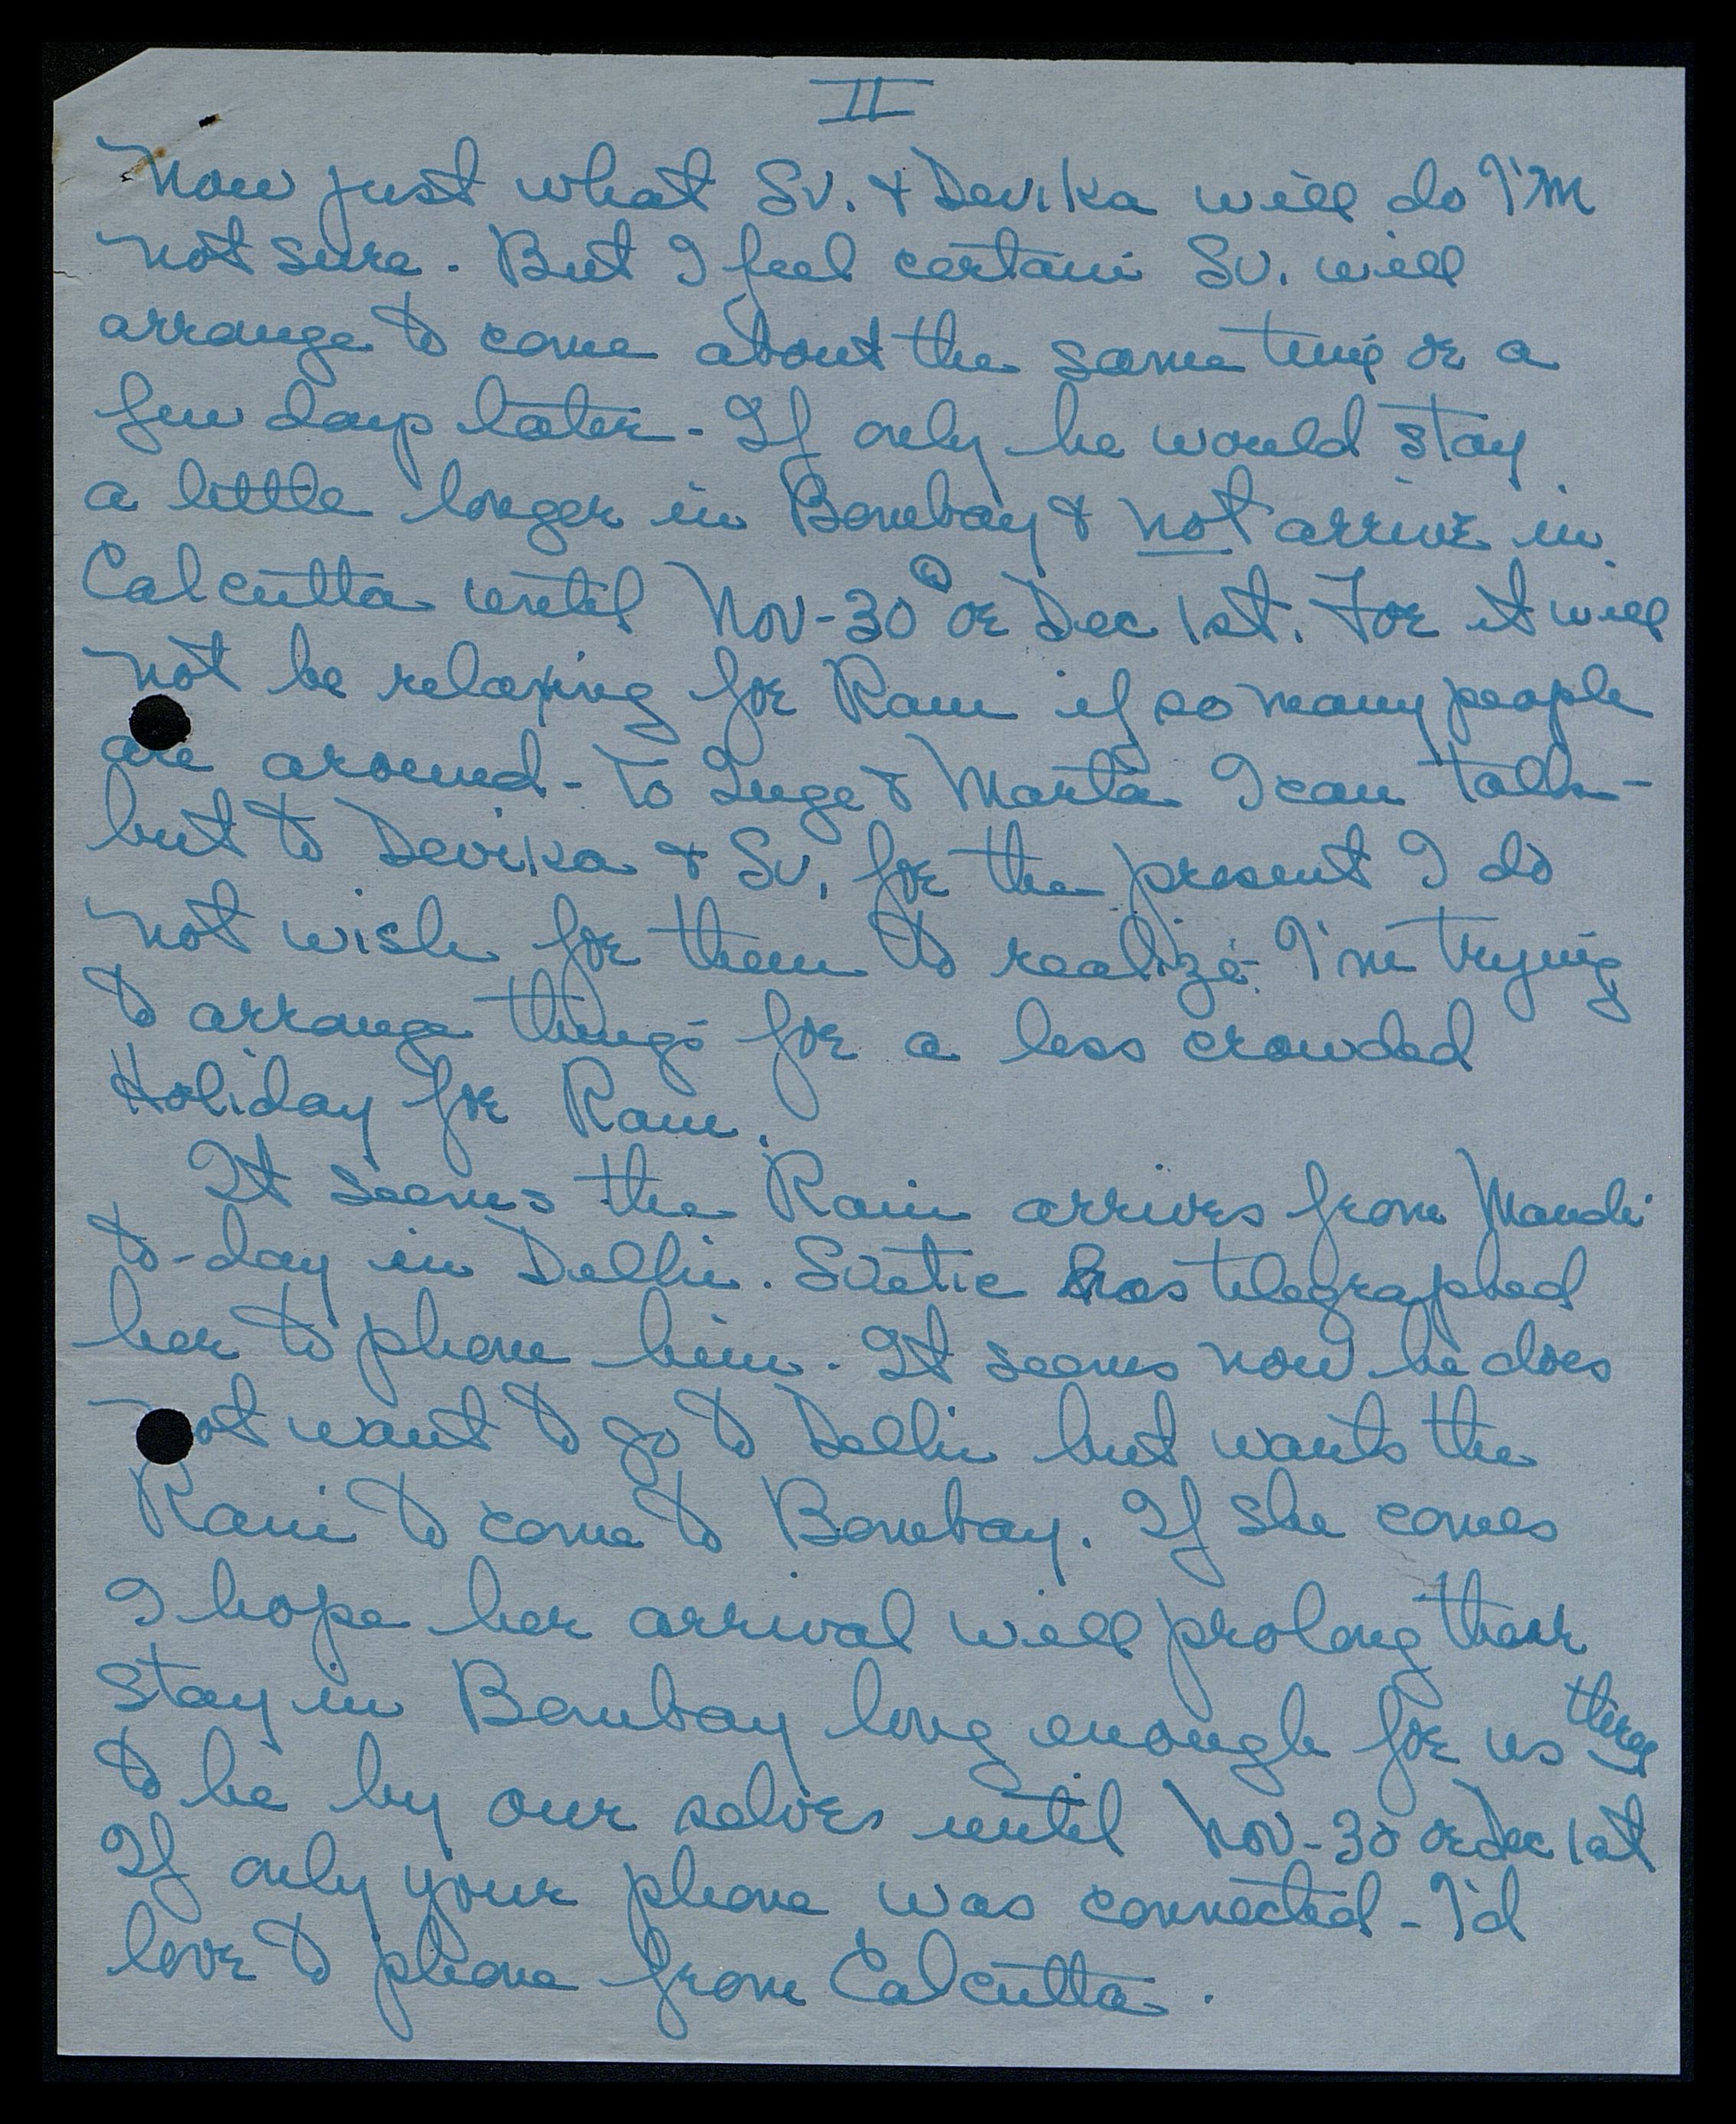 II
Now just what Sv. & Devika will do I'm
not sure. But I feel certain Sv. will
arrange to come about the same time or a
few days later - If only he would stay
a little longer in Bombay & not arrive in
Calcutta until Nov-30 or Dec 1st. For it will
not be relaxing for Ram if so many people
are around - To Inge & Marta I can talk -
but to Devika & Sv. for the present I do
not wish for them to realize I'm trying
to arrange things for a less crowded
Holiday for Ram.
It seems the Rani arrives from Mandi
to-day in Delhi. Svetie has telegraphed
her to phone him. It seems now he does
not want to go to Delhi but wants the
Rani to come to Bombay. If she comes
I hope her arrival will prolong their
stay in Bombay long enough for us three
to be by our selves until Nov-30 or Dec 1st
If only your phone was connected - I'd
love to phone from Calcutta.